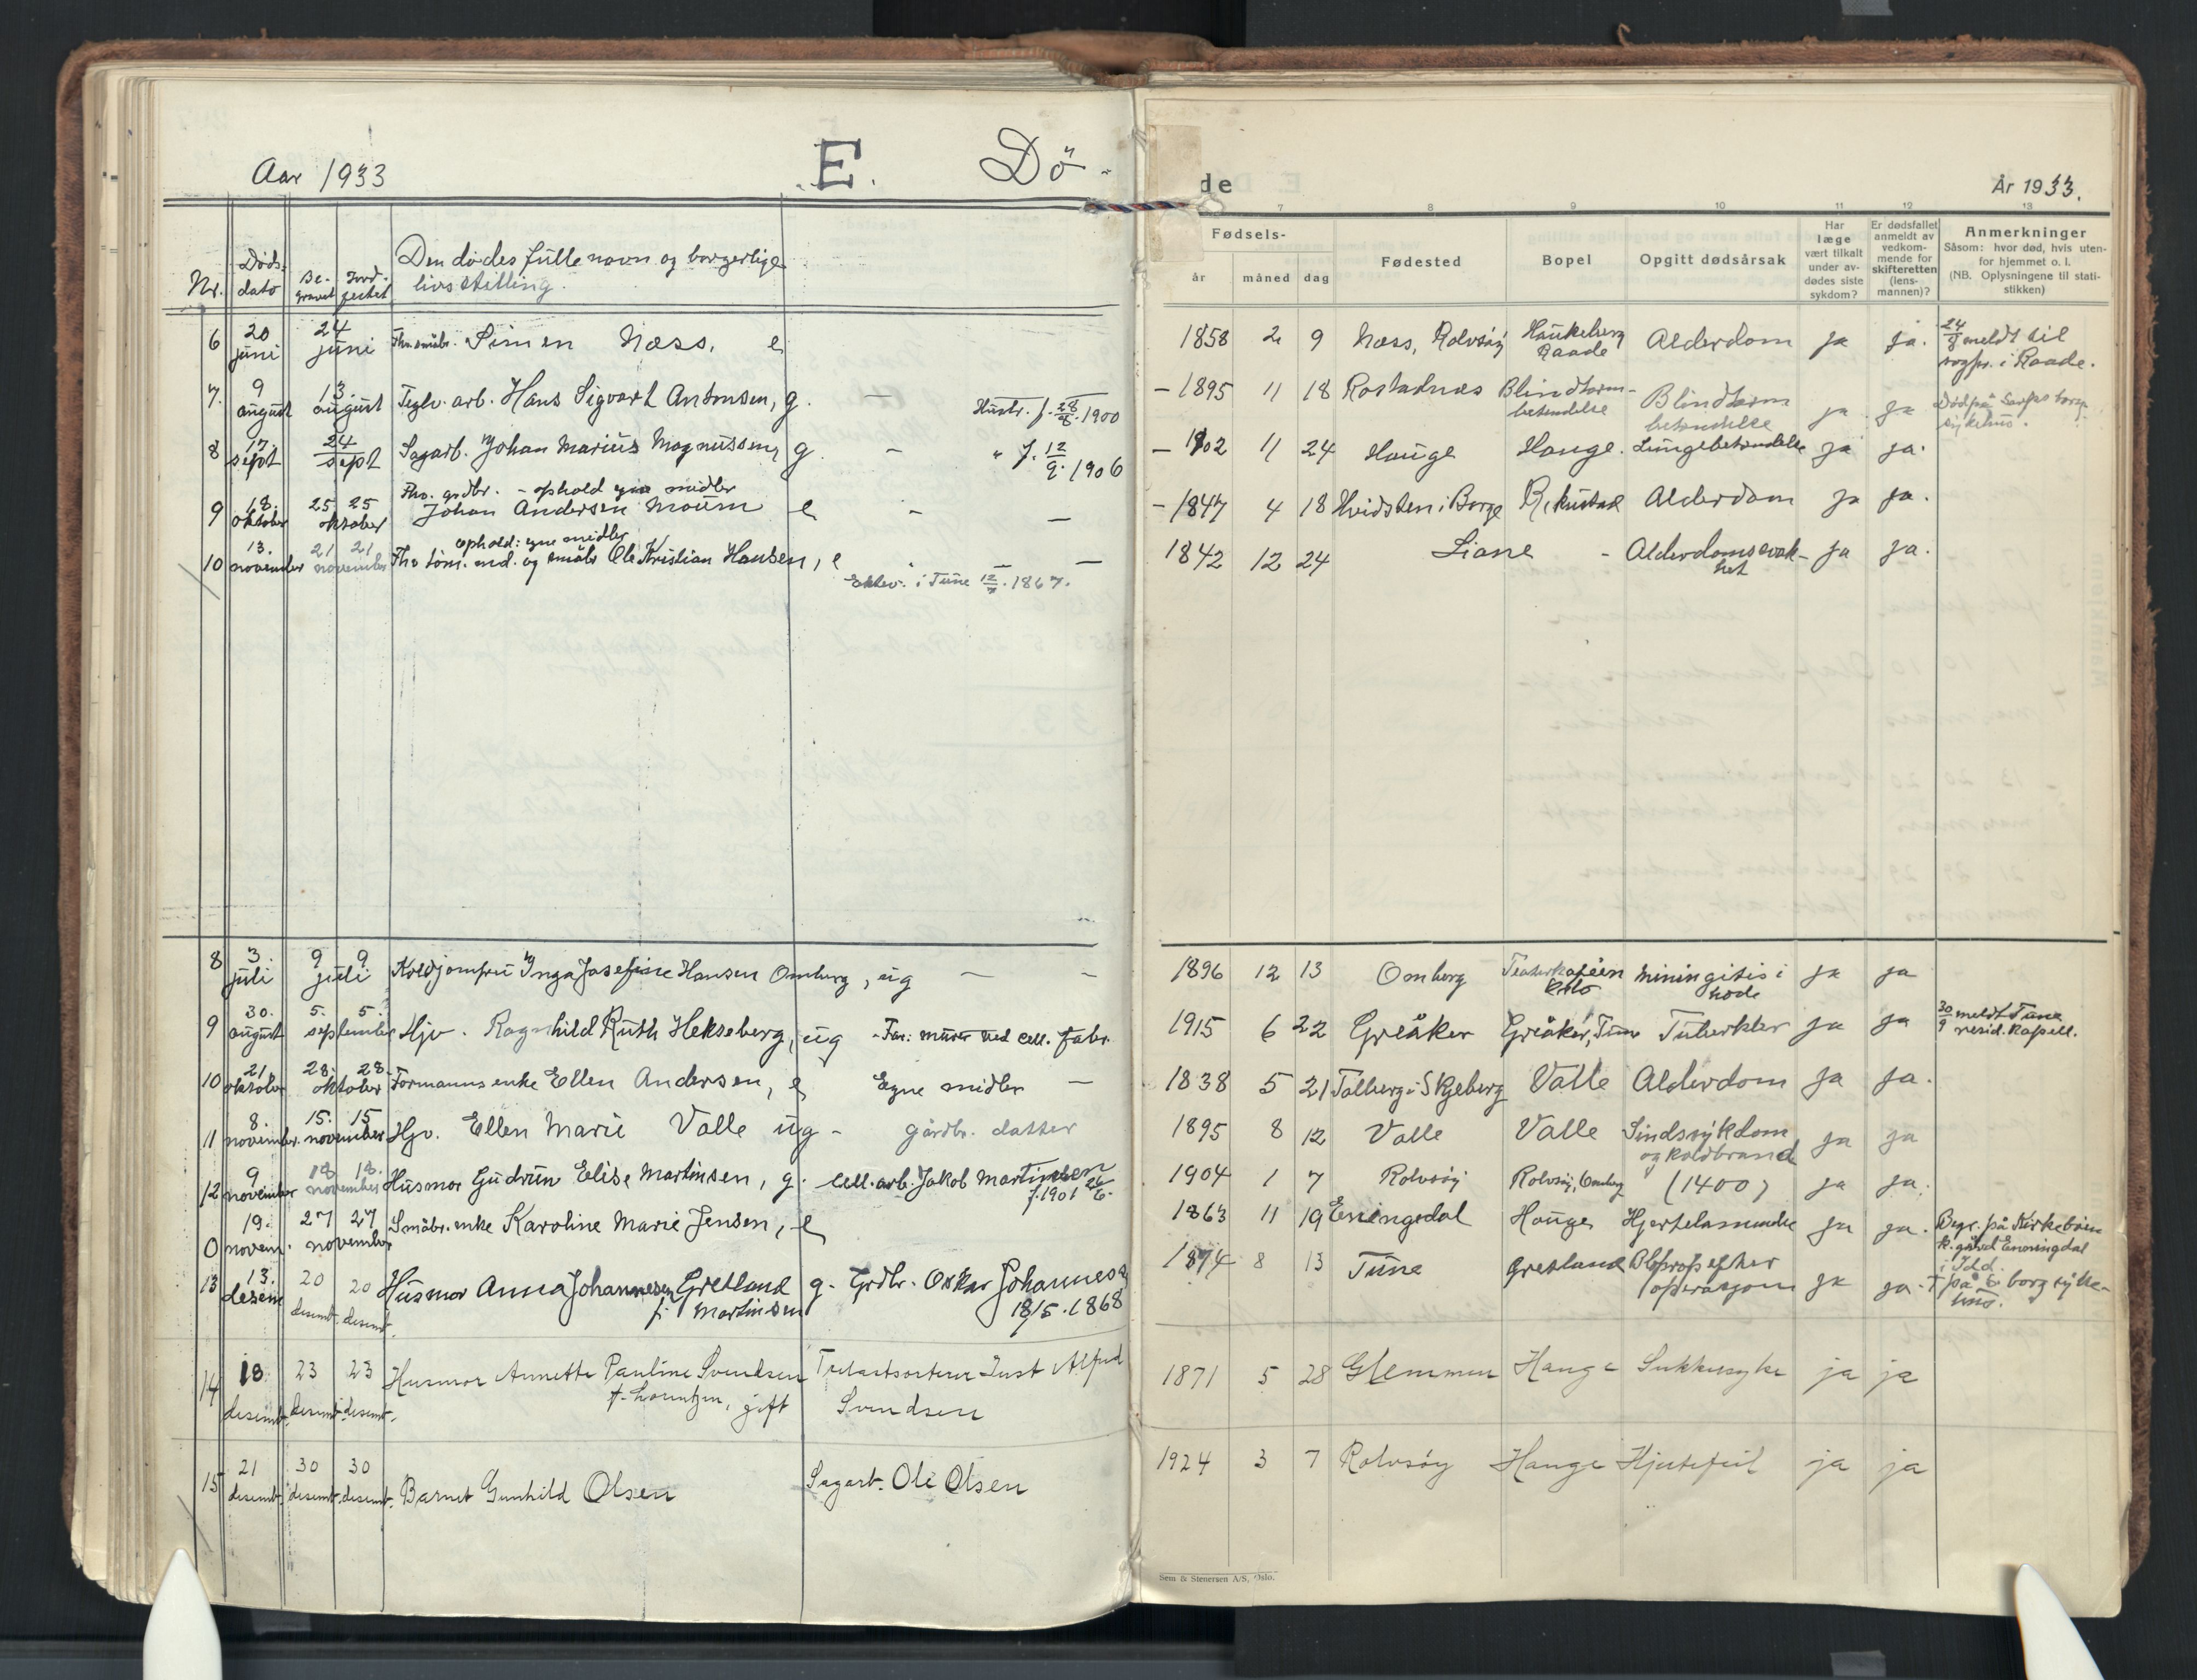 Aar 1933
E.
Dö-
de
År 1933.
Nr.
Døds-
dato
Be-
gravet
Jord-
festet
Den dødes fulle navn og borgerlige
livsstilling.
7
8
9
10
11
12
13
Fødsels-
år
måned
dag
Fødested
Bopel
Opgitt dødsårsak
Har
læge
vært tilkalt
under av-
dødes siste
sykdom?
Er dødsfallet
anmeldt av
vedkom-
mende for
skifteretten
(lens-
mannen)?
Anmerkninger
Såsom: hvor død, hvis uten-
for hjemmet o. l.
(NB. Oplysningene til stati-
stikken)
6 20 juni 24 juni Fhv. småbr. Simen Næss, e 1858 2 9 Næss, Rolvsøy Haukeberg Raade Alderdom ja ja. 24/8 meldt til sogpr. i Raade.
7. 9 august 13. august Teglv. arb. Hans Sigvart Antonsen, g. — Hustr. f. 28/8. 1900 – 1895 11 18 Rostadnæs Blindtarm-betendelse Blindtarm betendelse ja ja Død på Sarpsborg sykehus.
8 17. sept 24 sept Sagarb. Johan Marius Magnussen, g. – " f. 12/9. 1906 – 1902 11 24 Hauge Hauge. Lungebetendelse ja ja.
9 18. oktober 25 25 oktober Fhv. grdbr. – ophold egne midler
Johan Andersen Moum e - — – 1847 4 18 Hvidsten i Borge Rekustad Alderdom ja ja.
10 13. november 21 21 november ophold: egne midler
Fhv. tøm. md. og småbr Ole Kristian Hansen, e — 1842 12 24 Liane - Alderdomssvak-het ja ja.
Ektev. i Tune 12/7. 1867.
8 3. juli 9 9 juli Koldjomfru Inga Josefine Hansen Omberg, ug — – 1896 12 13 Omberg Teaterkaféen Oslo Miningitis i hode ja ja
9 30. august 5. 5. september Hjv. Ragnhild Ruth Hekseberg, ug - Far: murer ved cell. fabr. 1915 6 22 Greåker Greåker, Tune Tuberkler ja ja 30/9 meldt Tune resid. kapell.
10 21. oktober 28. 28. oktober Formanns enke Ellen Andersen, e Egne midler — 1838 5 21 Talberg i Skjeberg Valle Alderdom ja ja.
11 8. november. 15. 15 november Hjv. Ellen Marie Valle ug - gårdbr. datter 1895 8 12 Valle Valle Sindssykdom og koldbrand ja ja
12 9 november 18 18. november Husmor Gudrun Elise Martinsen, g. cell. arb. Jakob Martinsen f. 1901 26/6. 1904 1 7 Rolvsøy Rolvsøy, Omberg (1400) ja ja.
0 19. novem. 27 27 november Småbr. enke Karoline Marie Jensen, e 1863 11 19 Eningsdal Hauge Hjertelammelse ja ja. Begr. på Kirkebøen k. gård Enningdal i Idd.
13 13. desem 20 desemb. 20 desemb. Husmor Anna Johannesen Gretland f. Martinsen g. Grdbr. Oskar Johannesen 18/5. 1868 1874 8 13 Tune Gretland Blprop efter operasjon ja ja. † på S. borg syke-hus.
14 18 desemb. 23 desemb. 23 desemb. Husmor Annette Pauline Svendsen f. Lorntzen, gift Trelastsorterer Just Alfred Svendsen 1871 5 28 Glemmen Hauge Sukkersyke ja ja
15 21 desemb. 30 desemb. 30 desemb. Barnet Gunhild Olsen Sagarb. Ole Olsen 1924 3 7 Rolvsøy Hauge Hjertefeil ja ja
Sem & Stenersen A/S, Oslo.